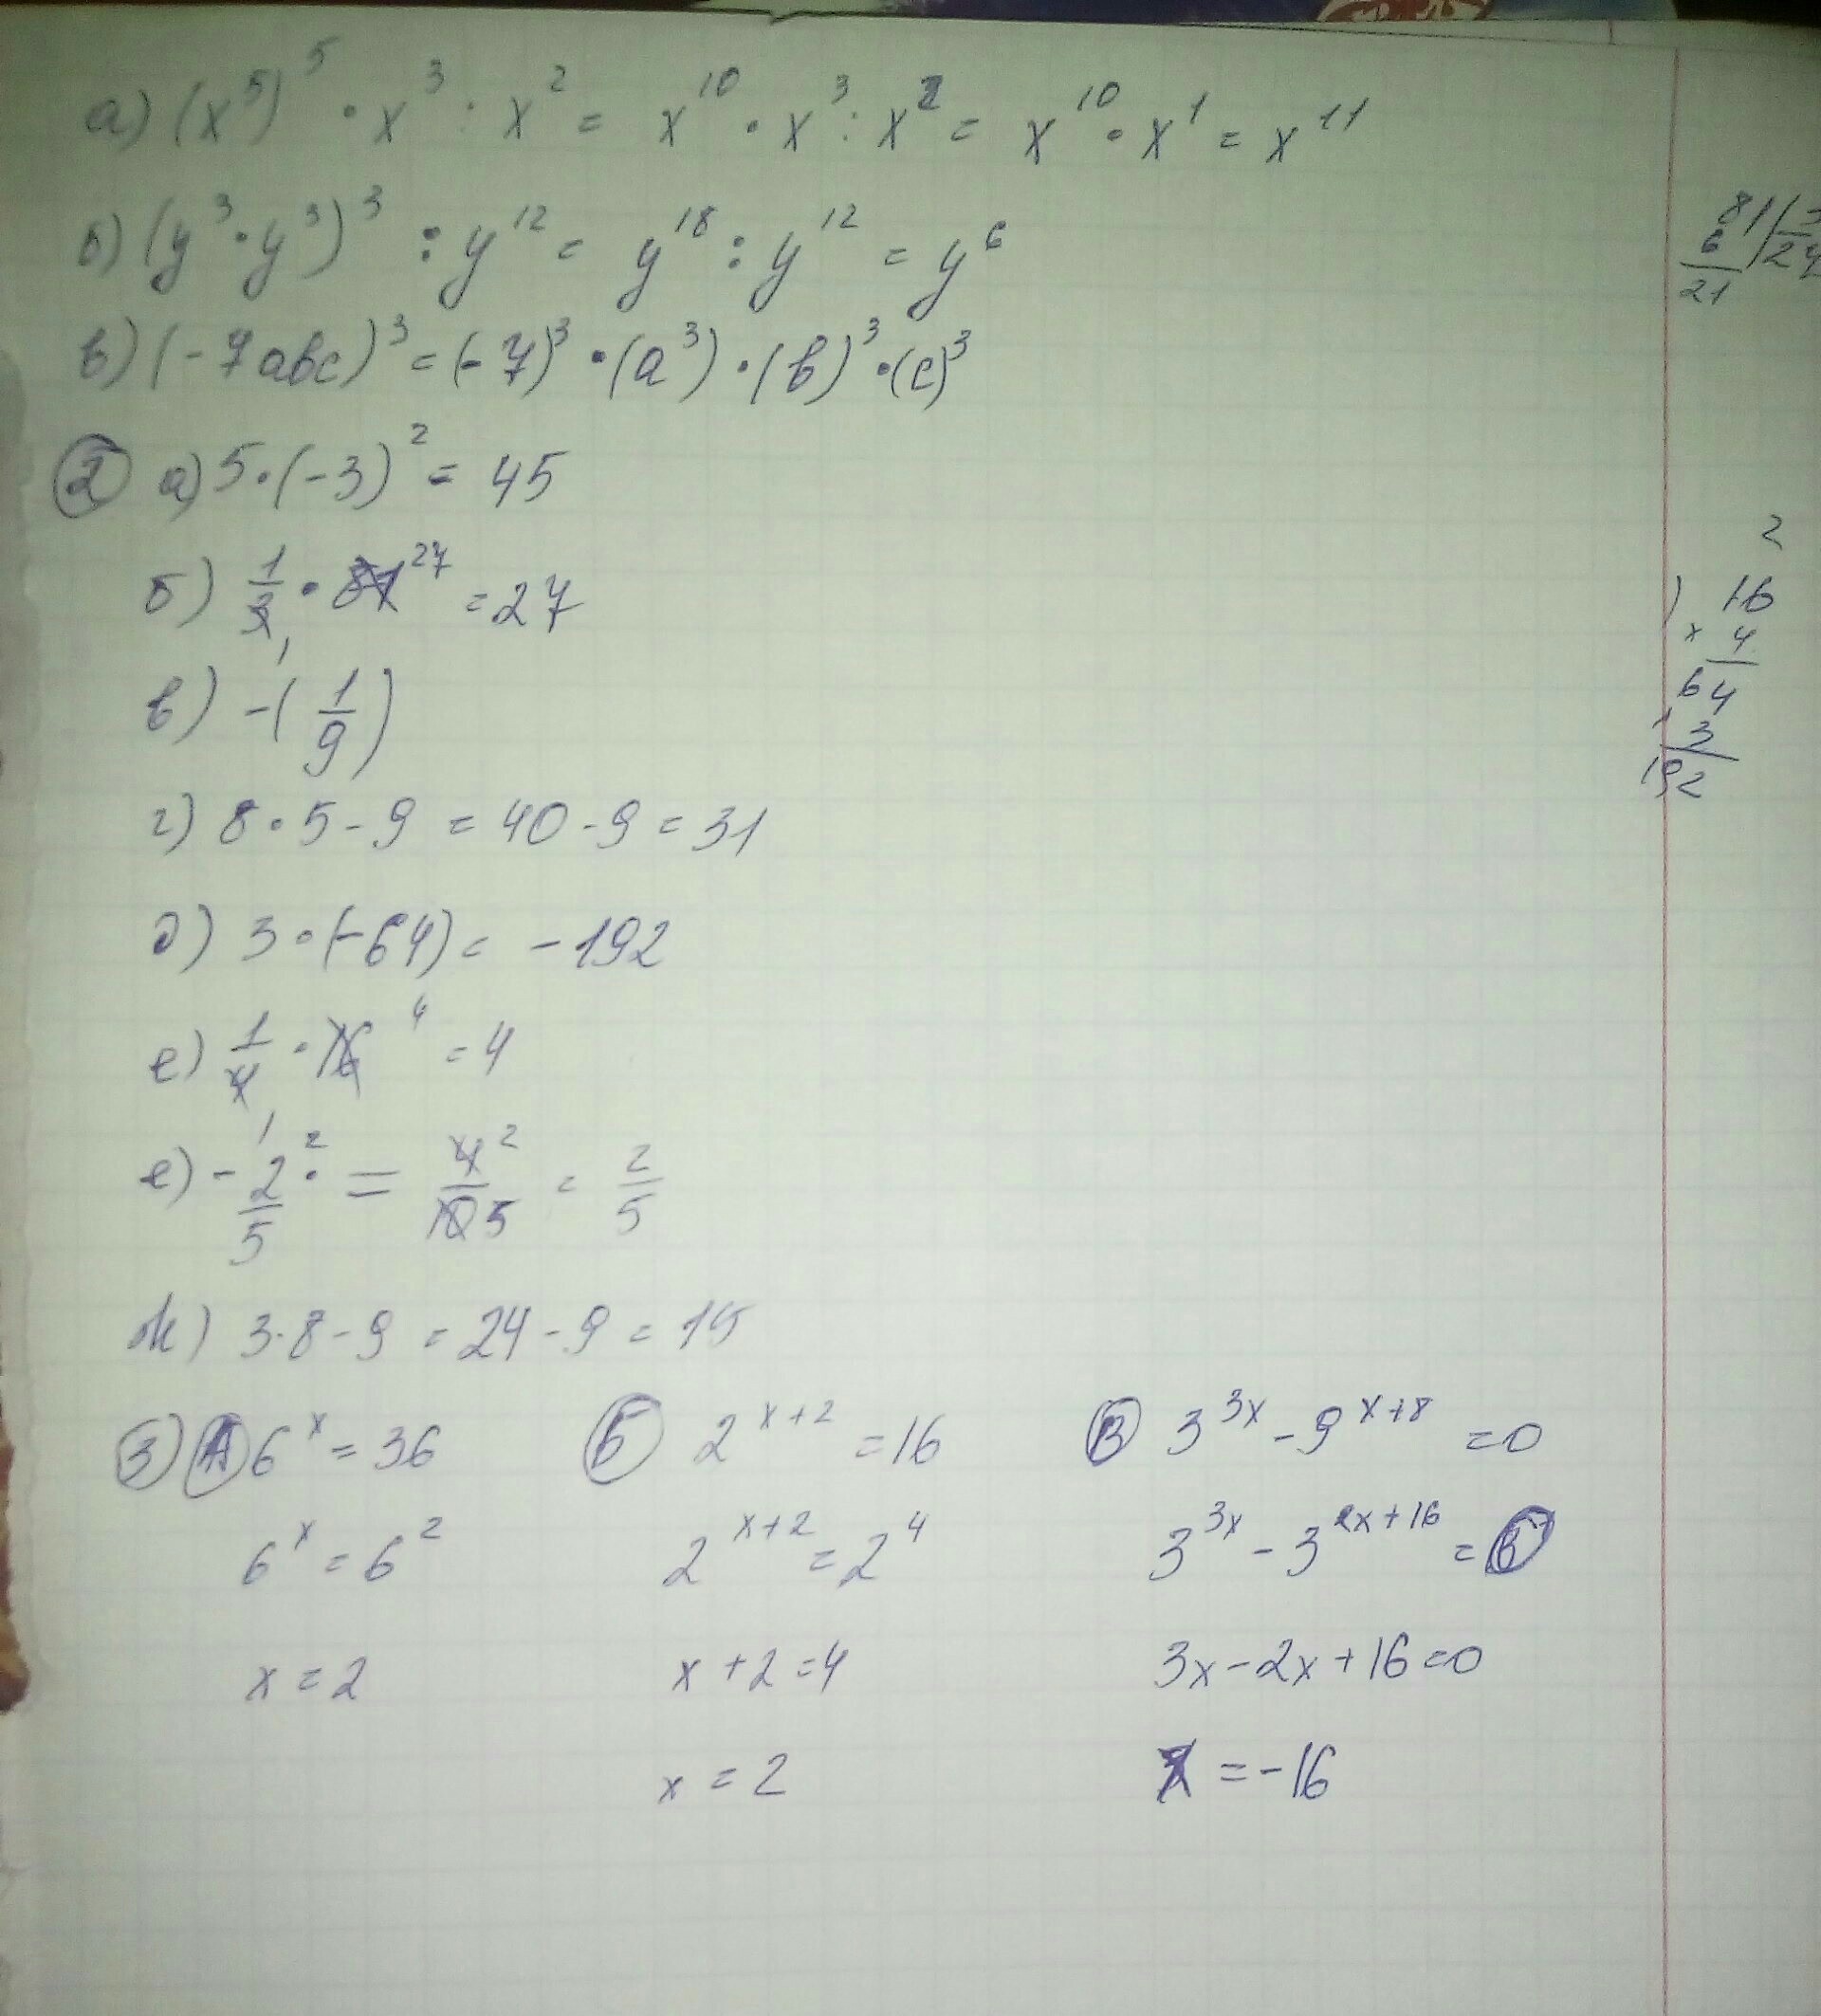 а) (x⁵)⁵ · x³ : x² = x¹⁰ · x³ : x² = x¹⁰ · x¹ = x¹¹
б) (y³ · y³)³ : y¹² = y¹⁸ : y¹² = y⁶
в) (-7abc)³ = (-7)³ · (a³) · (b)³ · (c)³
② а) 5 · (-3)² = 45
б) 1/3 · 81 27 = 27
1
в) -(1/9)
г) 8 · 5 - 9 = 40 - 9 = 31
д) 3 · (-64) = -192
е) 1/4 · 16 4 = 4
1
е) - 2/5 · ² = 4 2/10 5 = 2/5
ж) 3 · 8 - 9 = 24 - 9 = 15
③ А 6ˣ = 36
6ˣ = 6²
x = 2
Б 2ˣ⁺² = 16
2ˣ⁺² = 2⁴
x + 2 = 4
x = 2
В 3³ˣ - 9ˣ⁺⁸ = 0
3³ˣ - 3²ˣ⁺¹⁶ =
3x - 2x + 16 = 0
x = -16
81 | 3
6 | 27
21
2
16
x 4
64
3
192